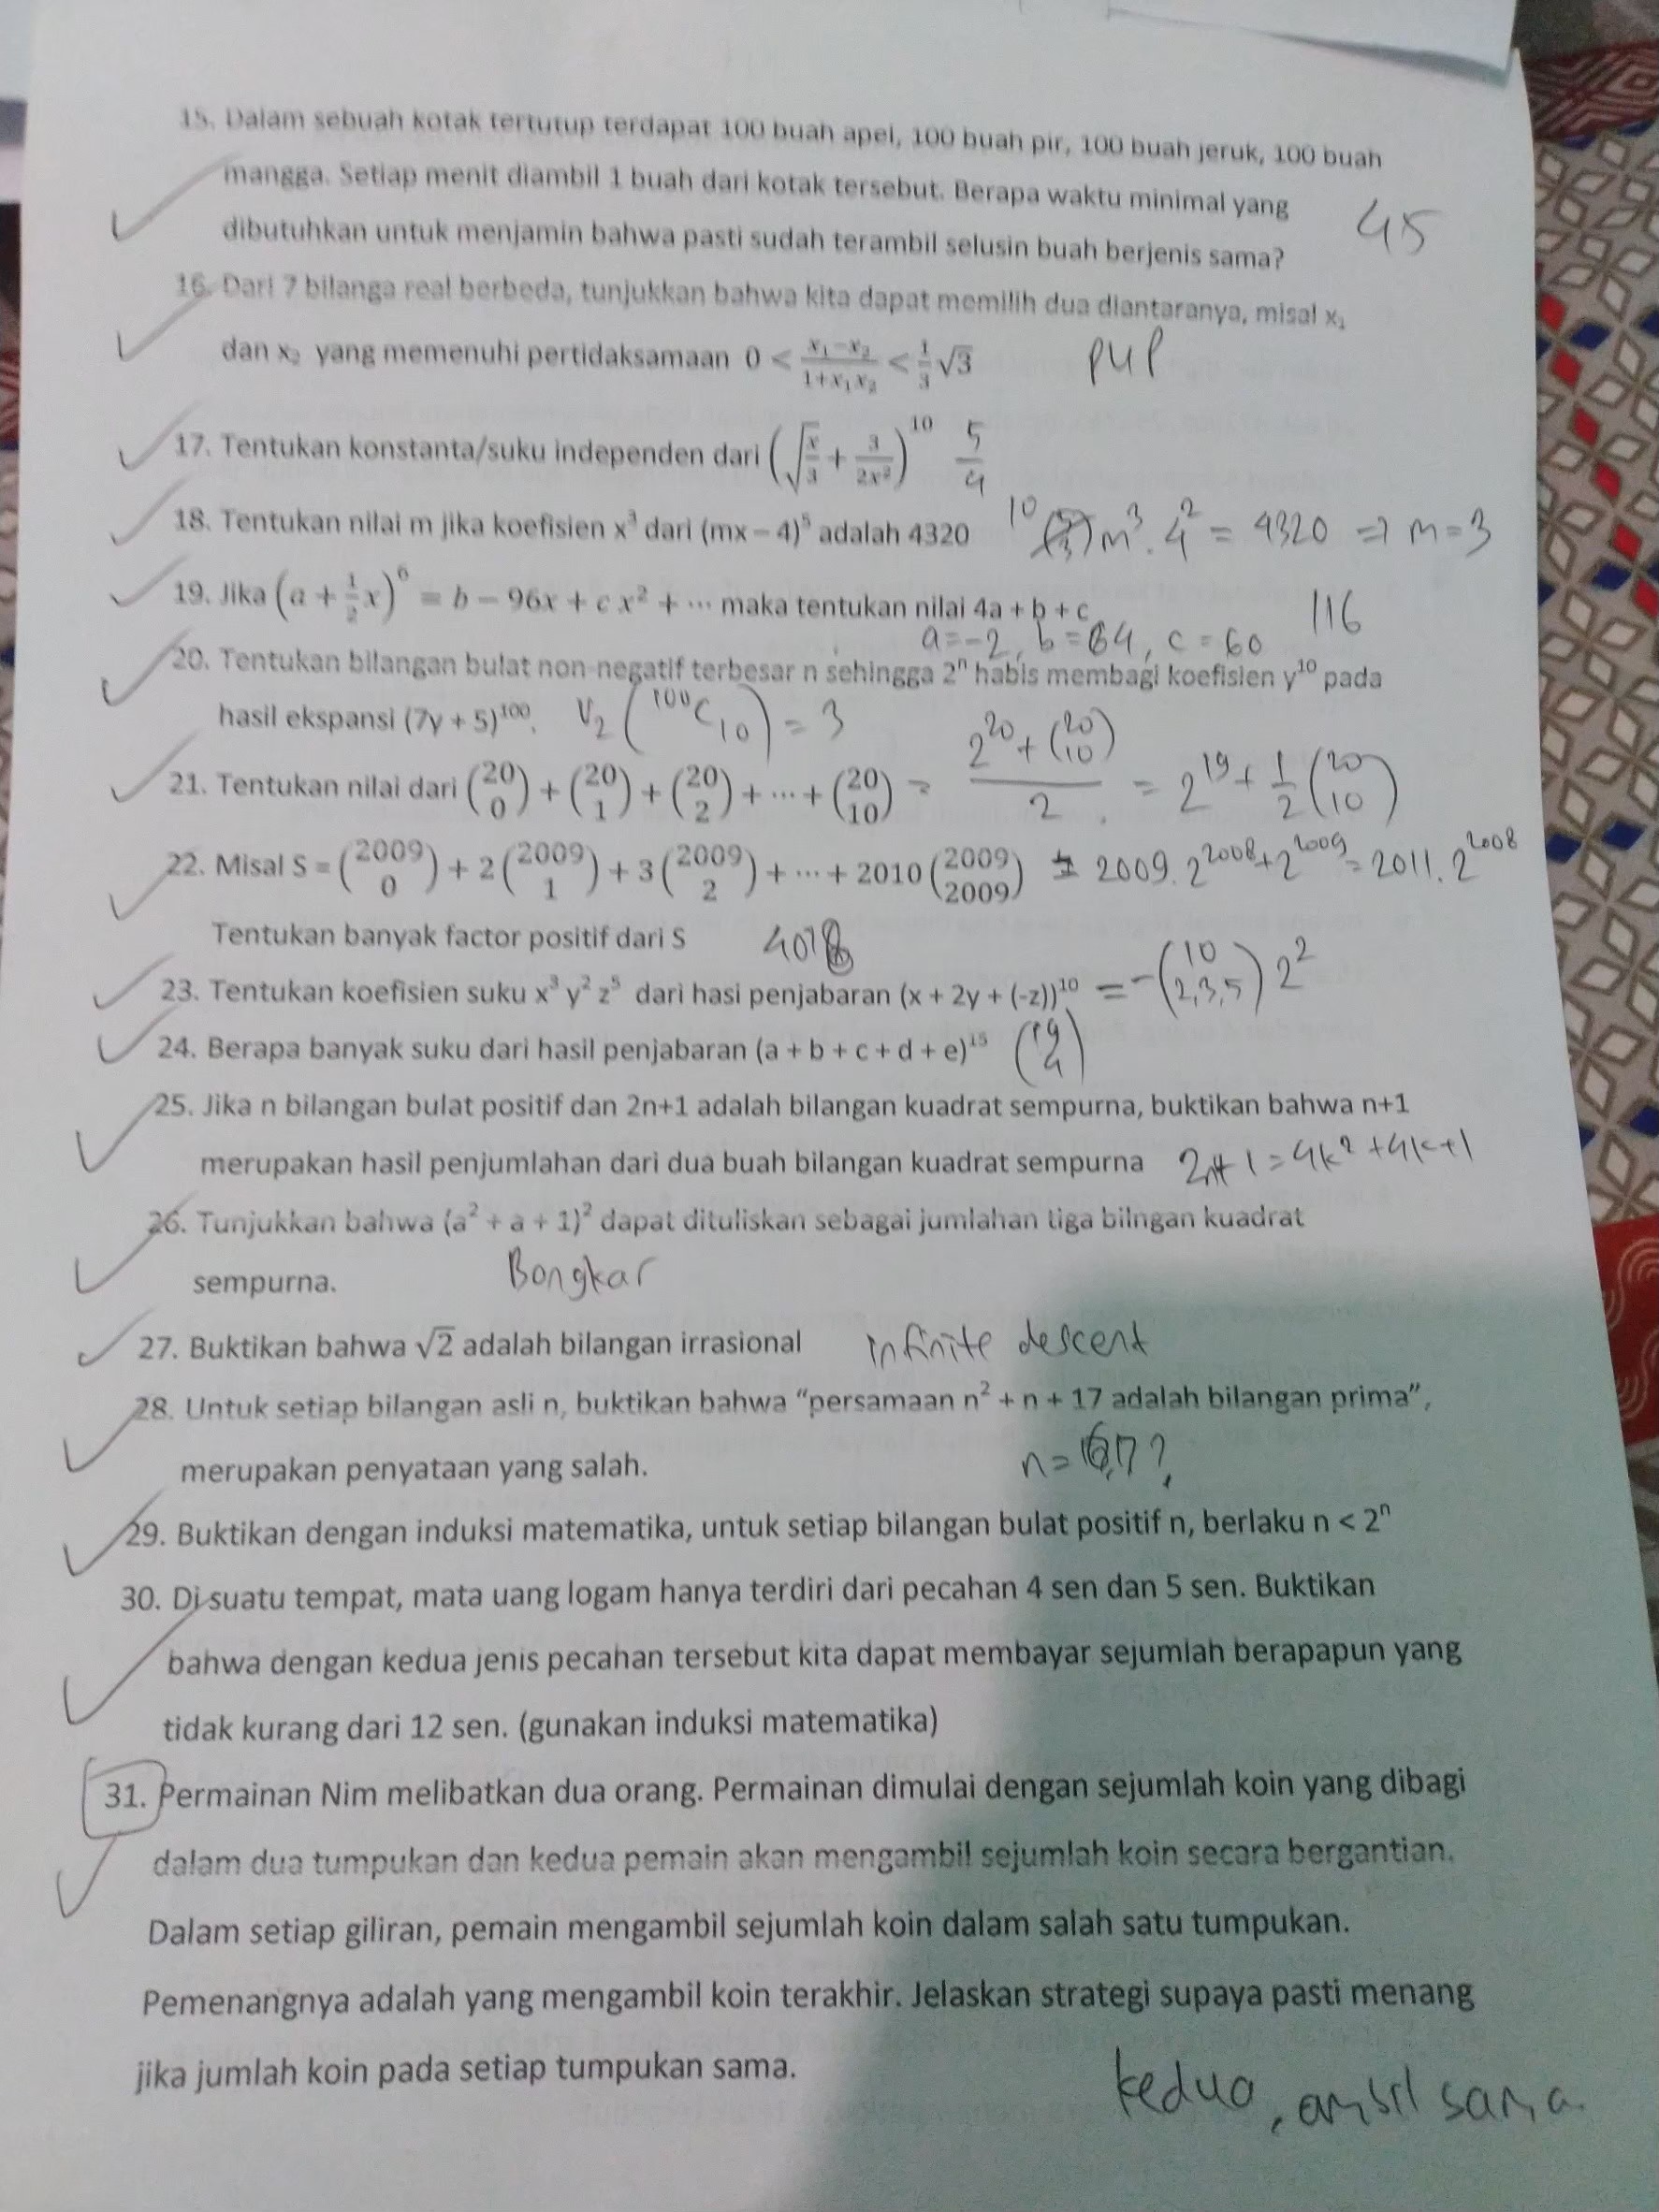 15. Dalam sebuah kotak tertutup terdapat 100 buah apel, 100 buah pir, 100 buah jeruk, 100 buah
mangga. Setiap menit diambil 1 buah dari kotak tersebut. Berapa waktu minimal yang
dibutuhkan untuk menjamin bahwa pasti sudah terambil selusin buah berjenis sama? 45
16. Dari 7 bilanga real berbeda, tunjukkan bahwa kita dapat memilih dua diantaranya, misal x₁
dan x₂ yang memenuhi pertidaksamaan 0 < (x₁−x₂)/(1+x₁x₂) < 1/3 √3 PHP
17. Tentukan konstanta/suku independen dari (√(x/3) + 3/(2x²))¹⁰ 5/4
18. Tentukan nilai m jika koefisien x³ dari (mx – 4)⁵ adalah 4320 10 m³ . 4² = 4320 => m = 3
19. Jika (a + ½x)⁶ = b − 96x + c x² + ⋯ maka tentukan nilai 4a + b + c 116
a = -2, b = 64, c = 60
20. Tentukan bilangan bulat non negatif terbesar n sehingga 2ⁿ habis membagi koefisien y¹⁰ pada
hasil ekspansi (7y + 5)¹⁰⁰. V₂(¹⁰⁰C₁₀) = 3
21. Tentukan nilai dari (20 0) + (20 1) + (20 2) + ⋯ + (20 10) = (2²⁰ + (20 10))/2 = 2¹⁹ + 1/2 (20 10)
22. Misal S = (2009 0) + 2(2009 1) + 3(2009 2) + ⋯ + 2010(2009 2009) = 2009. 2²⁰⁰⁸ + 2²⁰⁰⁹ = 2011. 2²⁰⁰⁸
Tentukan banyak factor positif dari S
23. Tentukan koefisien suku x³ y² z⁵ dari hasi penjabaran (x + 2y + (-z))¹⁰ = -(10 2,3,5) 2²
24. Berapa banyak suku dari hasil penjabaran (a + b + c + d + e)¹⁵ (19 4)
25. Jika n bilangan bulat positif dan 2n+1 adalah bilangan kuadrat sempurna, buktikan bahwa n+1
merupakan hasil penjumlahan dari dua buah bilangan kuadrat sempurna 2n+1 = 4k² + 4k + 1
26. Tunjukkan bahwa (a² + a + 1)² dapat dituliskan sebagai jumlahan tiga bilngan kuadrat
sempurna. Bongkar
27. Buktikan bahwa √2 adalah bilangan irrasional infinite descent
28. Untuk setiap bilangan asli n, buktikan bahwa “persamaan n² + n + 17 adalah bilangan prima”,
merupakan penyataan yang salah. n =
29. Buktikan dengan induksi matematika, untuk setiap bilangan bulat positif n, berlaku n < 2ⁿ
30. Di suatu tempat, mata uang logam hanya terdiri dari pecahan 4 sen dan 5 sen. Buktikan
bahwa dengan kedua jenis pecahan tersebut kita dapat membayar sejumlah berapapun yang
tidak kurang dari 12 sen. (gunakan induksi matematika)
31. Permainan Nim melibatkan dua orang. Permainan dimulai dengan sejumlah koin yang dibagi
dalam dua tumpukan dan kedua pemain akan mengambil sejumlah koin secara bergantian.
Dalam setiap giliran, pemain mengambil sejumlah koin dalam salah satu tumpukan.
Pemenangnya adalah yang mengambil koin terakhir. Jelaskan strategi supaya pasti menang
jika jumlah koin pada setiap tumpukan sama.
kedua, ambil sama.